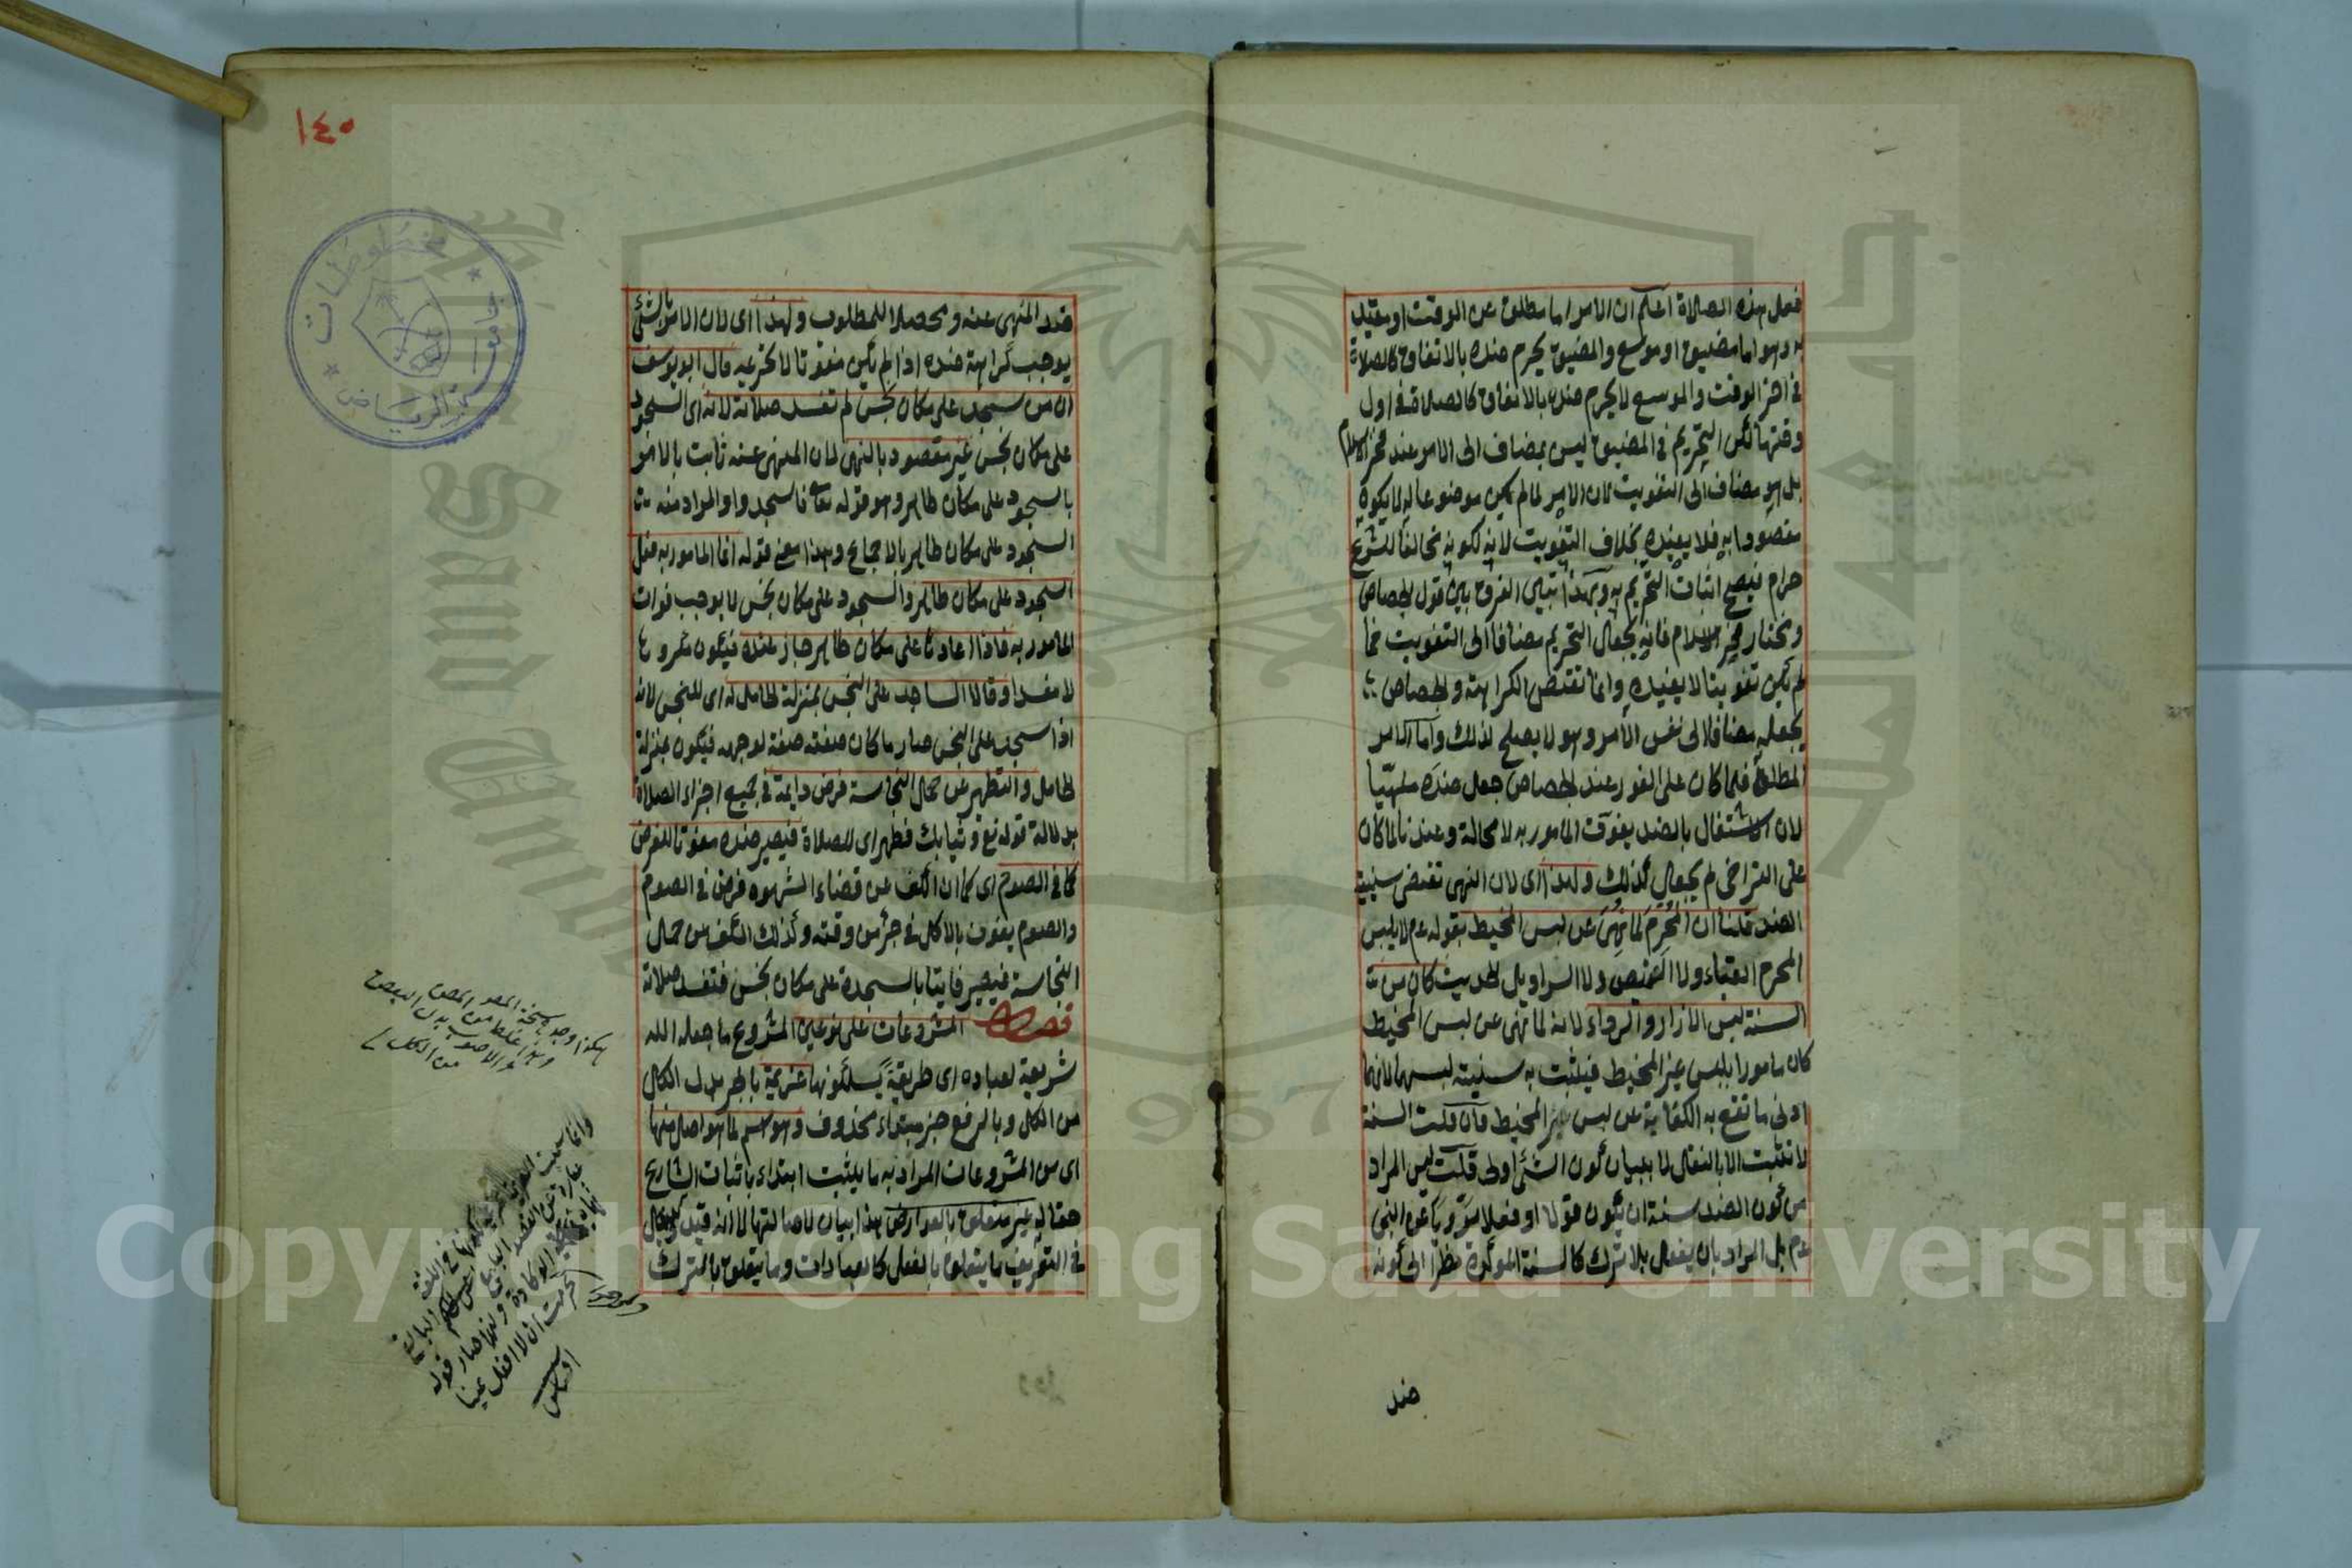 فعل هذه الصلاة اعلم ان الامر اما مطلق عن الوقت او مقيد
به وهو اما مضيق او موسع والمضيق يحرم ضده بالاتفاق كالصلاة
في اخر الوقت والموسع لا يحرم ضده بالاتفاق كالصلاة في اول
وقتها لكن التحريم في المضيق ليس بمضاف الى الامر عند فخر الاسلام
بل هو مضاف الى التفويت لان الامر لما لم يكن موضوعا له لا يكون
مقصودا به فلا يفيده بخلاف التفويت لانه لكونه مخالفا للشرع
حرام فيصح اثبات التحريم به وبهذا تبين الفرق بين قول الجصاص
ومختار فخر الاسلام فانه يجعل التحريم مضافا الى التفويت فما
لم يكن تفويتا لا يفيده وانما تقتضى الكراهة والجصاص
يجعله مضافا الى نفس الامر وهو لا يصلح لذلك واما الامر
المطلق فلما كان على الفور عند الجصاص جعل ضده منهيا
لان الاشتغال بالضد يفوت المامور به لا محالة وعندنا لما كان
على التراخى لم يجعل كذلك ولهذا اى لان النهى تقتضى سنية
الضد قلنا ان المحرم لما نهى عن لبس المخيط بقوله عم لا يلبس
المحرم القباء ولا القميص ولا السراويل الحديث كان من
السنة لبس الازار والرداء لانه لما نهى عن لبس المخيط
كان مامورا بلبس غير المخيط فيثبت به سنيته لبسهما لانهما
ادنى ما تقع به الكفاية عن لبس غير المخيط فان قلت السنة
لا تثبت الا بالنقل لا ببيان كون الشئ اولى قلت ليس المراد
من كون الضد سنة ان يكون قولا او فعلا مرويا عن النبى
عم بل المراد بان يفعل بلا ترك كالسنة المؤكدة نظرا الى كونه
ضد
١٤٠
مخطوطات
جامعة الرياض
ضد المنهى عنه ومحصلا للمطلوب ولهذا اى لان الامر بالشئ
يوجب كراهة ضده اذا لم يكن مفوتا لا تحريمه قال ابو يوسف
ان من سجد على مكان نجس لم تفسد صلاته لانه اى السجود
على مكان نجس غير مقصود بالنهى لان المنهى عنه ثابت بالامر
بالسجود على مكان طاهر وهو قوله تعالى فاسجدوا والمراد منه
السجود على مكان طاهر بالاجماع وهذا معنى قوله انما المامور به فعل
السجود على مكان طاهر والسجود على مكان نجس لا يوجب فوات
المامور به فاذا اعادها على مكان طاهر جاز عنده فيكون مكروها
لا مفسدا وقالا الساجد على النجس بمنزلة الحامل له اى للنجس لانه
اذا سجد على النجس صار ما كان صفته صفة لوجهه فيكون بمنزلة
الحامل والتطهير عن حمل النجاسة فرض دايم في جميع اجزاء الصلاة
بدلالة قوله تع وثيابك فطهر اى للصلاة فيصير ضده مفوتا للفرض
كما في الصوم اى كما ان الكف عن قضاء الشهوه فرض في الصوم
والصوم يفوت بالاكل في جزء من وقته وكذلك الكف عن حمل
النجاسة فيصير فايتا بالسجدة على مكان نجس فتفسد صلاته
فصل المشروعات على نوعين المشروع ما جعله الله
شريعة لعباده اى طريقة يسلكونها عزيمة بالجر بدل الكل
من الكل وبالرفع خبر مبتداء محذوف وهو اسم لما هو اصل منها
اى من المشروعات المراد به ما يثبت ابتداء باثبات الشارع
حقا له غير متعلق بالعوارض هذا بيان لاصالتها لا انه قيد
في التعريف ما يتعلق بالفعل كالعبادات وما يتعلق بالترك
هكذا وجد نسخة
وهذا غلط من
والاصوب بدل البعض
من الكل